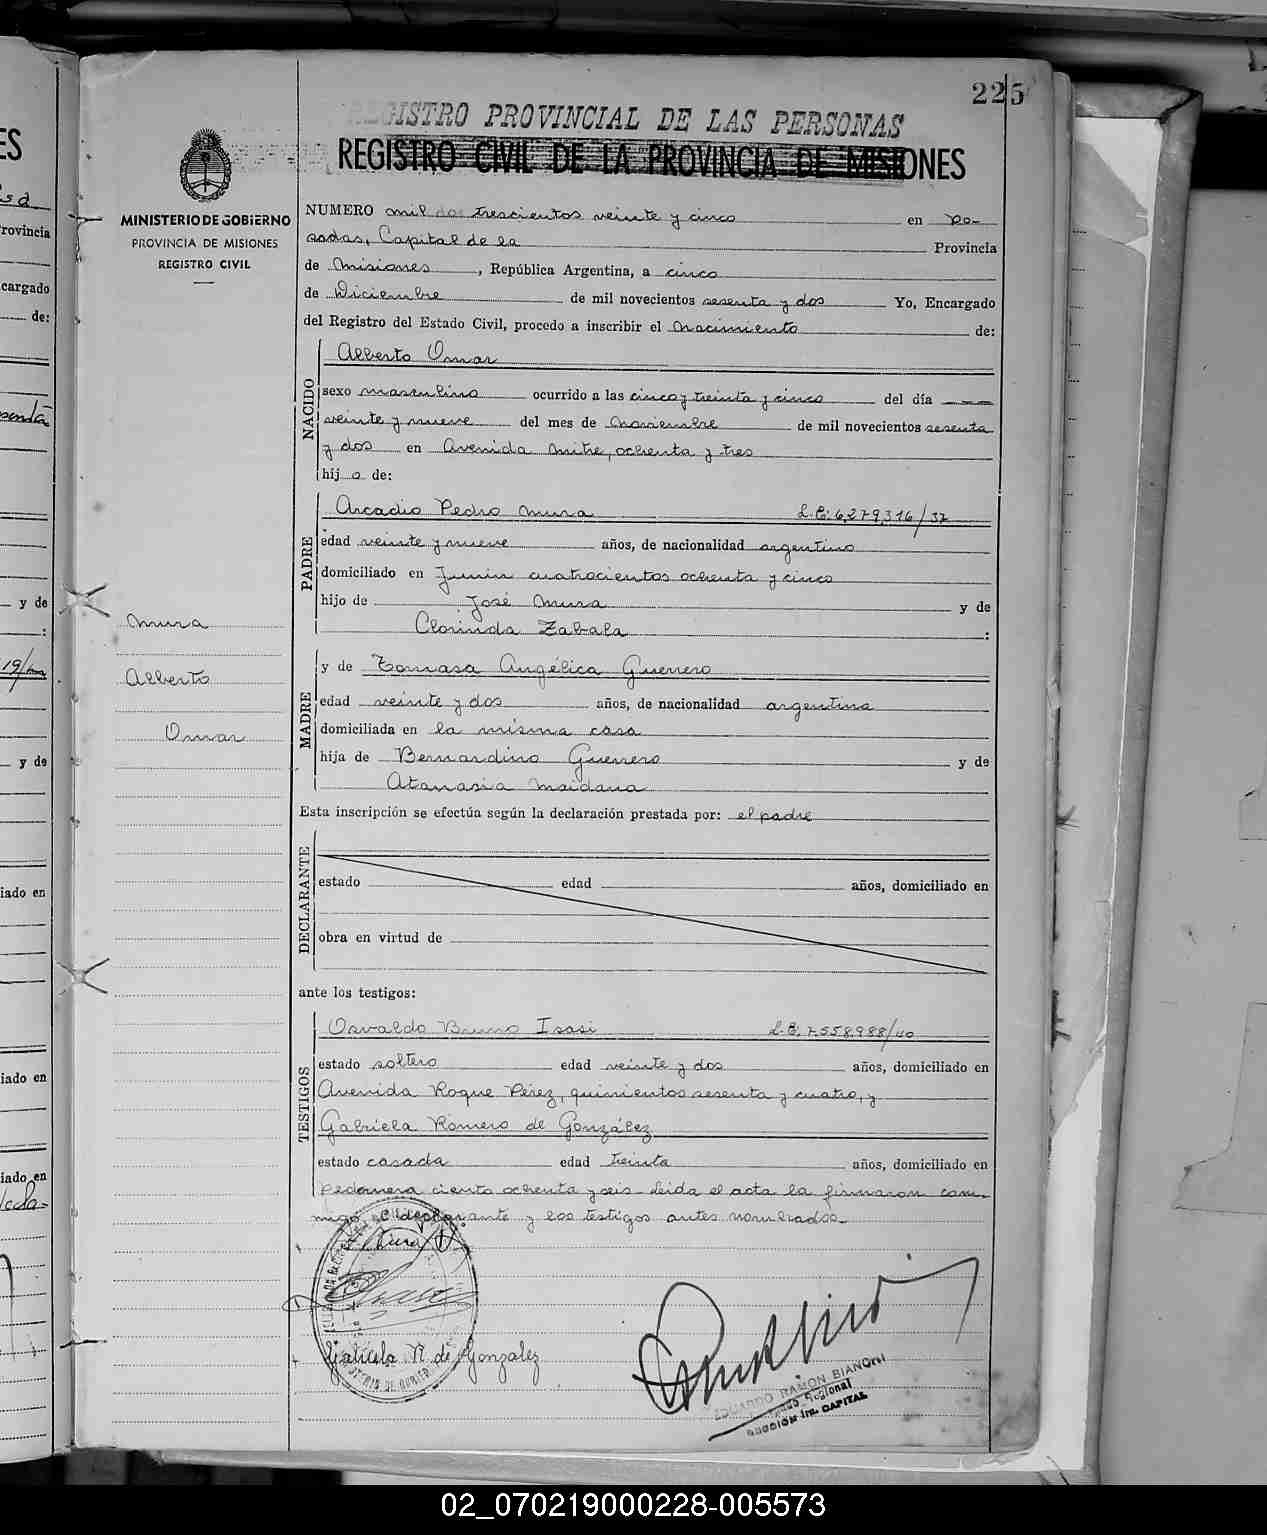 225
REGISTRO PROVINCIAL DE LAS PERSONAS
REGISTRO CIVIL DE LA PROVINCIA DE MISIONES
MINISTERIO DE GOBIERNO
PROVINCIA DE MISIONES
REGISTRO CIVIL
NUMERO mil trescientos veinte y cinco en Po-
sadas, Capital de la Provincia
de Misiones, República Argentina, a cinco
de Diciembre de mil novecientos sesenta y dos Yo, Encargado
del Registro del Estado Civil, procedo a inscribir el nacimiento de:
NACIDO
Alberto Omar
sexo masculino ocurrido a las cinco y treinta y cinco del día
veinte y nueve del mes de Noviembre de mil novecientos sesenta
y dos en Avenida Mitre, ochenta y tres
hijo de:
PADRE
Arcadio Pedro Mura L.E. 6.279.316/37
edad veinte y nueve años, de nacionalidad argentino
domiciliado en Junín cuatrocientos ochenta y cinco
hijo de José Mura y de
Clorinda Zabala :
Mura
Alberto
Omar
MADRE
y de Tomasa Angélica Guerrero
edad veinte y dos años, de nacionalidad argentina
domiciliada en la misma casa
hija de Bernardino Guerrero y de
Atanasia Maidana
Esta inscripción se efectúa según la declaración prestada por: el padre
DECLARANTE
estado edad años, domiciliado en
obra en virtud de
ante los testigos:
TESTIGOS
Osvaldo Bruno Isasi L.E. 7.558.988/40
estado soltero edad veinte y dos años, domiciliado en
Avenida Roque Pérez, quinientos sesenta y cuatro, y
Gabriela Romero de González
estado casada edad treinta años, domiciliado en
Pedernera ciento ochenta y seis - leida el acta la firmaron con-
migo, el declarante y los testigos antes nombrados.
Gabriela R de Gonzalez
EDUARDO RAMON BIANCHI
Regional
CAPITAL
02_070219000228-005573